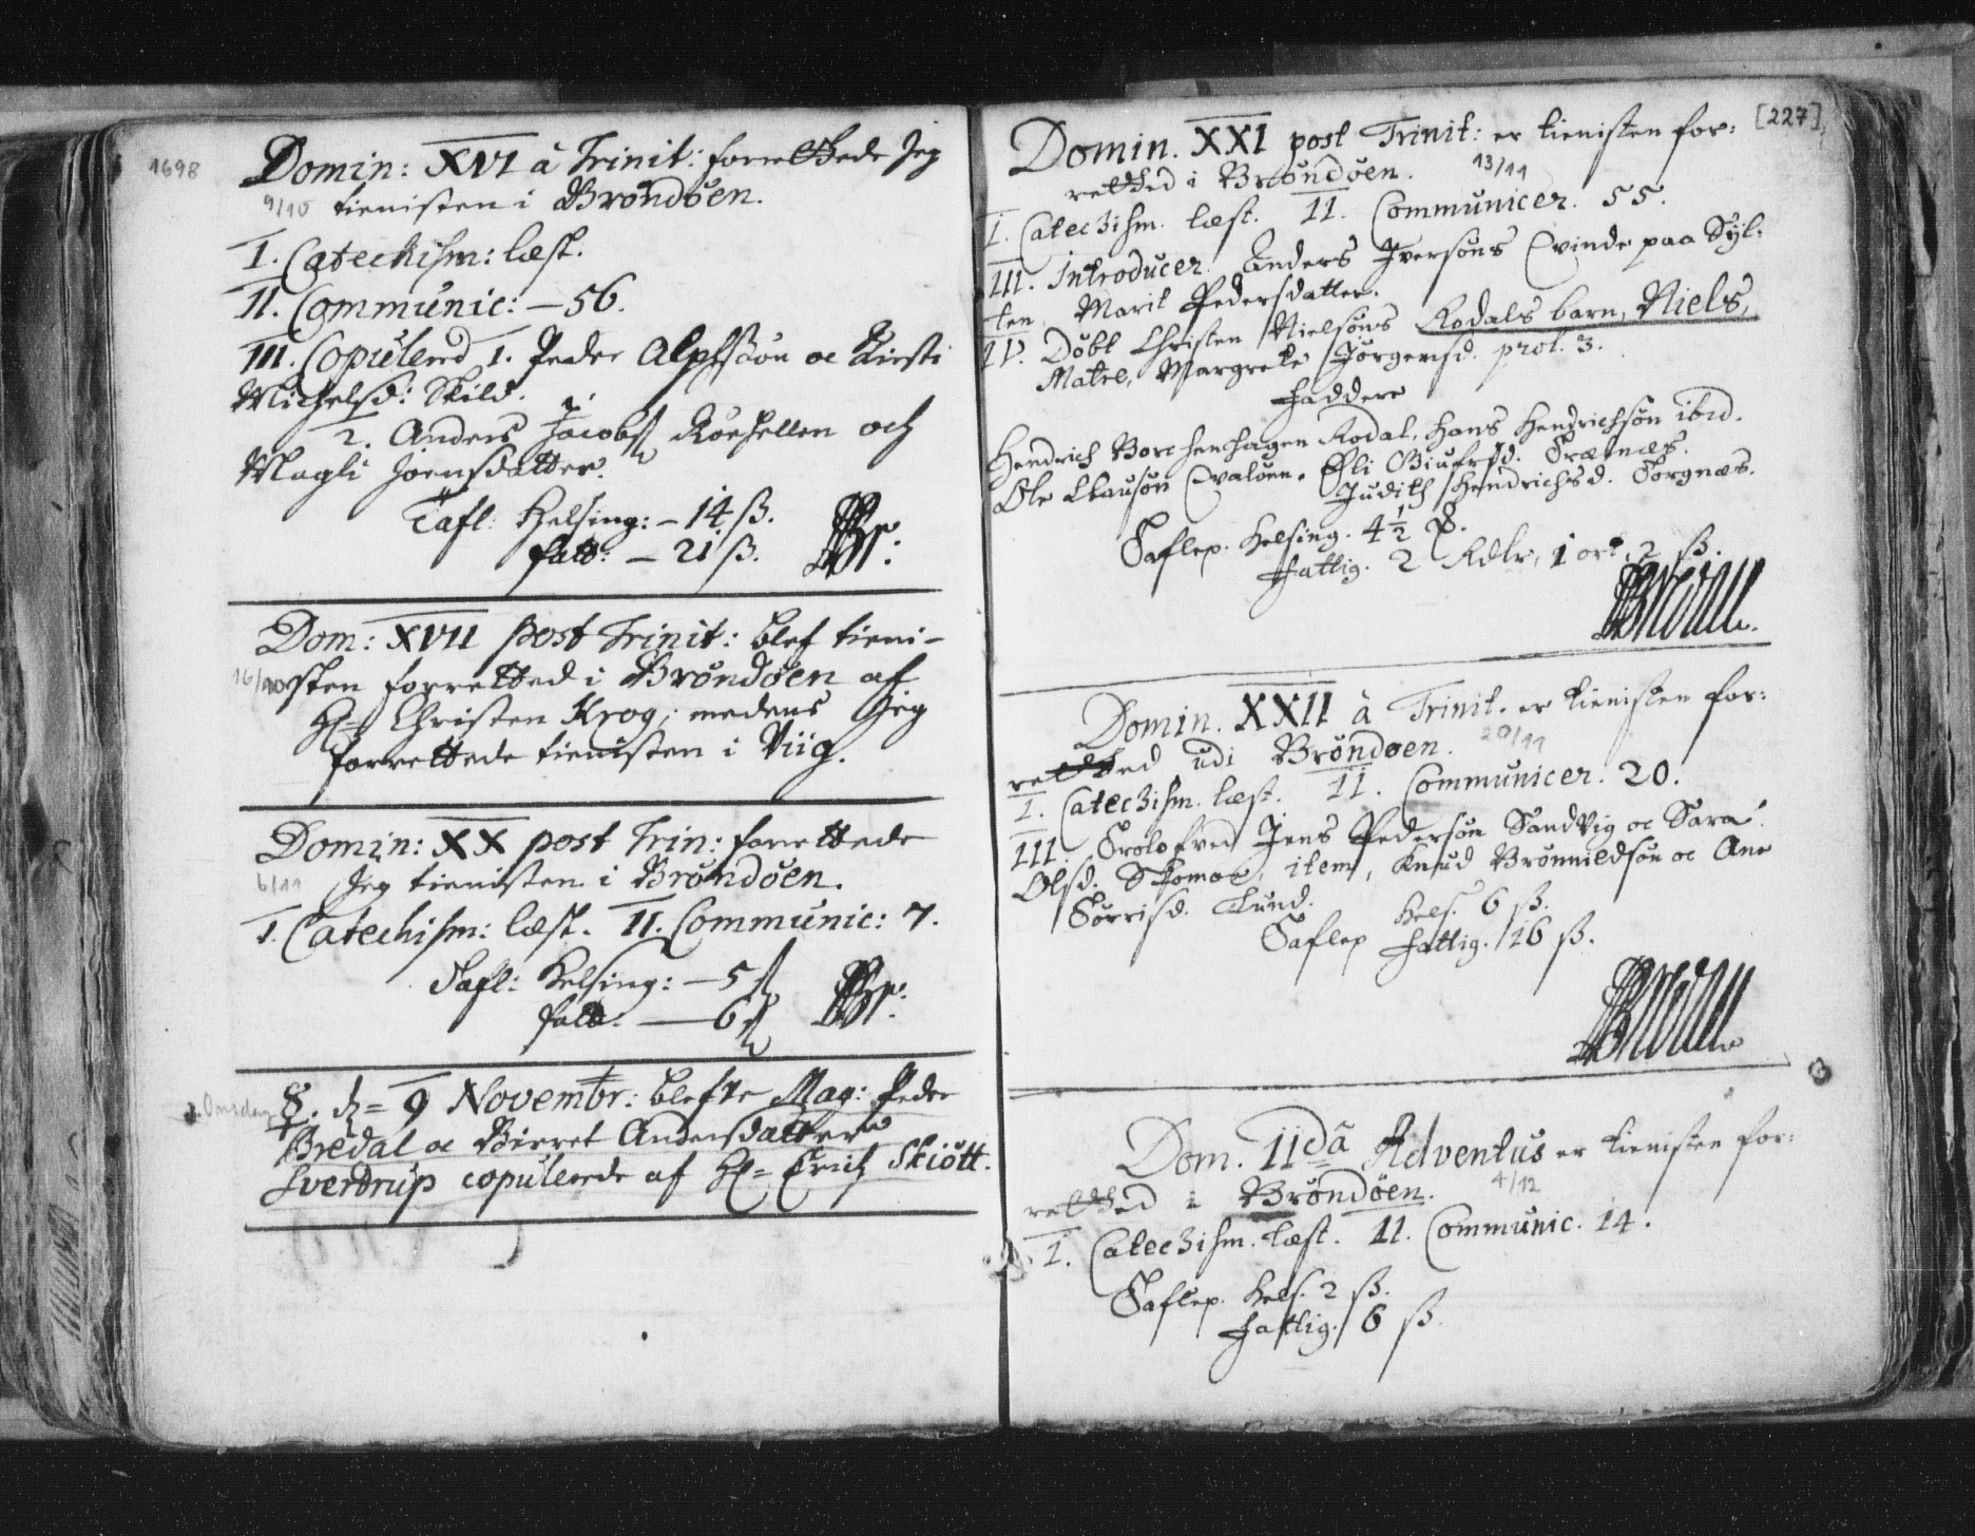 1698
Domin: XVI â Trinit: forrettede Jeg
9/10 tienisten i Brøndøen.
I. Catechism: læst.
II. Communic: – 56.
III. Copulered 1. Peder oc Kirsti
Michelsd: Skild.
2. Anders Jacobs och
Magli Joensdatter.
Tafl: Helsing: – 14 ß.
fatt: – 21 ß. Br:
Dom: XVII post Trinit: blef tieni-
16/10 sten forretted i Brøndøen af
Hr= Christen Krog; medens Jeg
forrettede tienisten i Viig.
Domin: XX post Trin: forrettede
6/11 Jeg tienisten i Brøndøen.
I. Catechism: læst. II. Communic: 7.
Tafl: Helsing: – 5 ß
fatt: – 6 ß Br:
Onsdag ☿. d= 9 Novembr: blefve Mag: Peder
Bredal oc Birret Andersdatter
Sverdrup copulerede af Hr= Erich Skiött.
[227]
Domin. XXI post Trinit: er tienisten for:
retted i Brøndøen. 13/11
I. Catechism. læst. II. Communicer. 55.
III. Introducer. Anders Iversøns Qvinde paa Syl:
ten Marit Pedersdatter.
IV. Døbt Christen Nielsøns Rodals barn, Niels,
Matre, Margrete Jørgensd. prol. 3.
Faddere
Hendrich Borchenhagen Rodal, Hans Hendrichsøn ibid.
Ole Clausøn Qvaløen,
Judith Hendrichsd. Torgnæs.
Taflep. Helsing. 4½ ß.
Fattig. 2 Rdlr, 1 ort 2 ß.
Bredall.
Domin. XXII à Trinit. er tienisten for:
retted udi Brøndøen. 20/11
I. Catechism. læst. II. Communicer. 20.
III. Trolofved Jens Pedersøn Sandvig oc Sara
Olsd. item, Knud Brønnildsøn oc Ane
Lund.
Hels. 6 ß.
Taflep Fattig. 16 ß.
Bredall
Dom. IIdâ Adventus er tienisten for:
retted i Brøndøen. 4/12
I. Catechism. læst. II. Communic. 14.
Taflep. Hels. 2 ß.
Fattig. 6 ß.